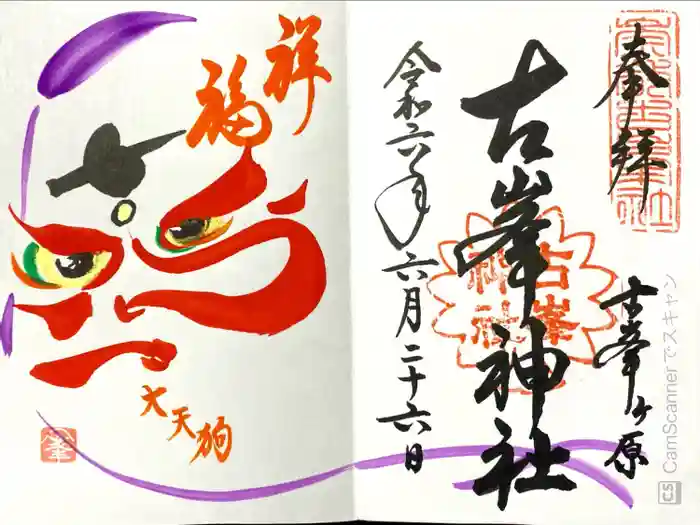 奉拝
古峯ヶ原
古峯神社
古峯
神社
令和六年六月二十六日
祥
福
大天狗
峯
CS CamScannerでスキャン